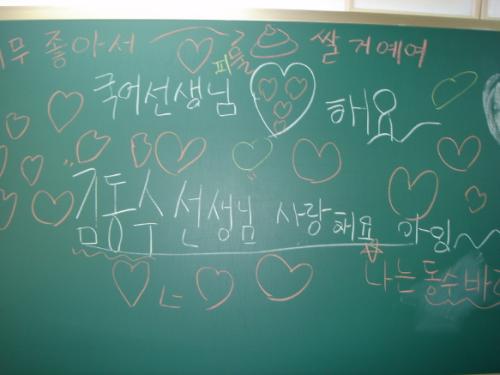 무 좋아서 쌀거예여
피똥
국어선생님 해요
김동수선생님 사랑해요 아잉
ㄴ 나는동수바